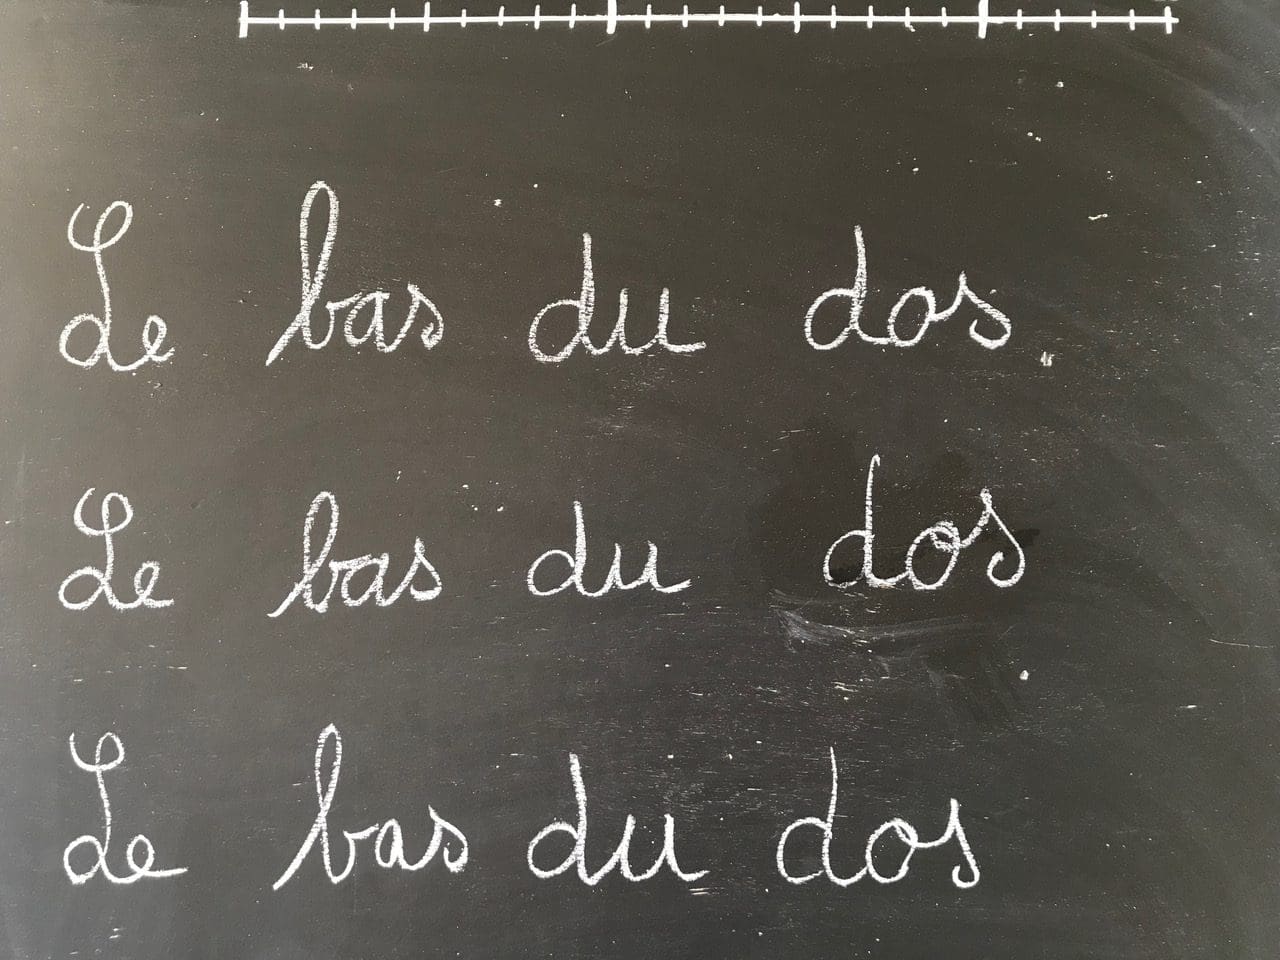 Le bas du dos.
Le bas du dos
Le bas du dos